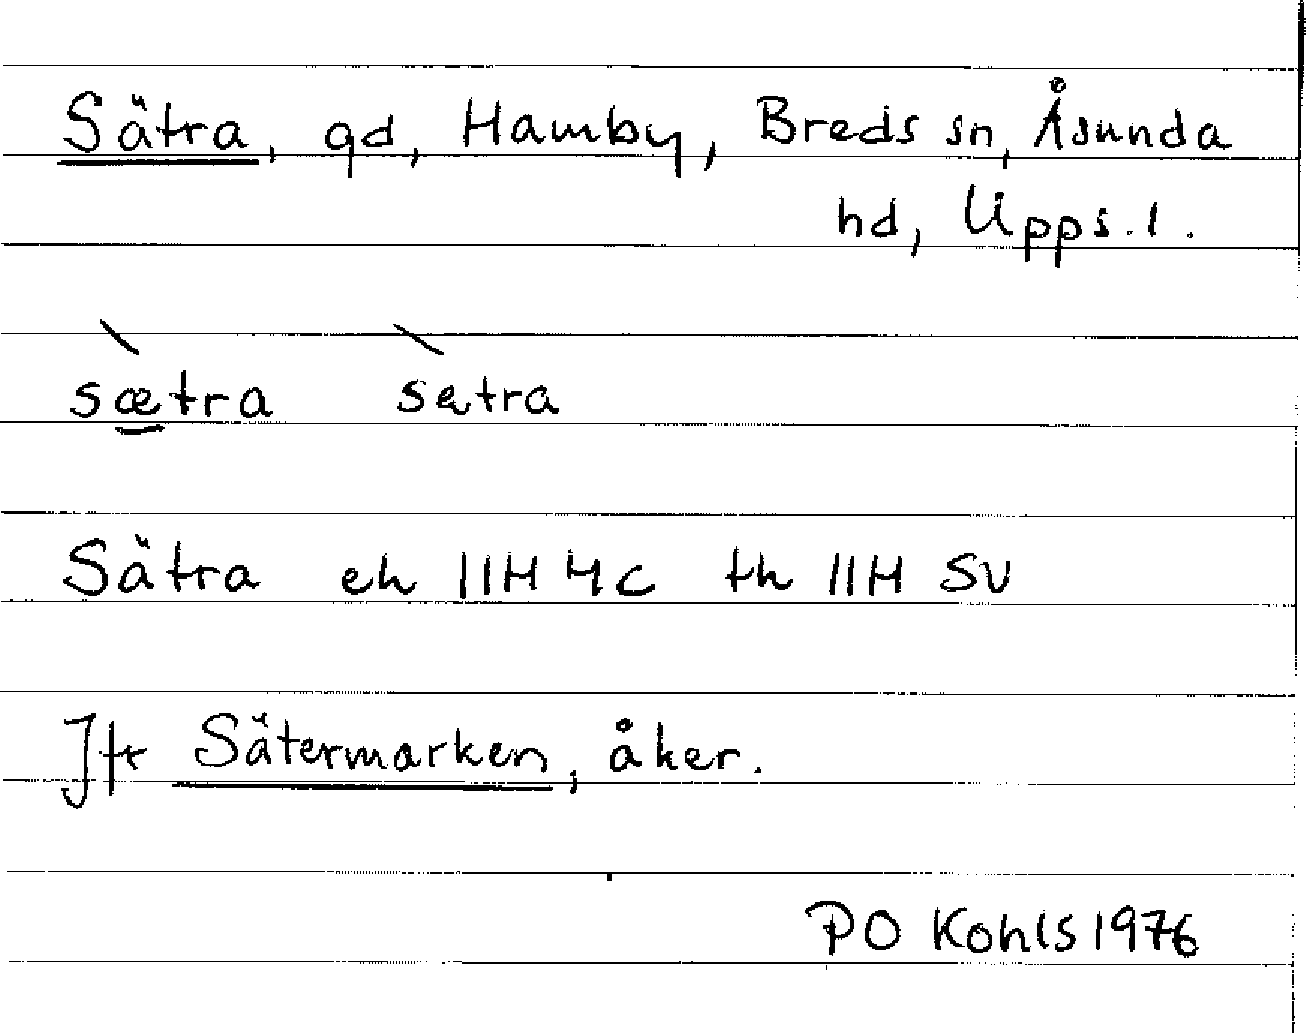 Sätra, gd, Hamby, Breds sn, Åsunda
hd, Upps. l.
sætra sætra
Sätra ek 11H 4c tk 11H SV
Jfr Sätermarken, åker.
PO Kohls 1976